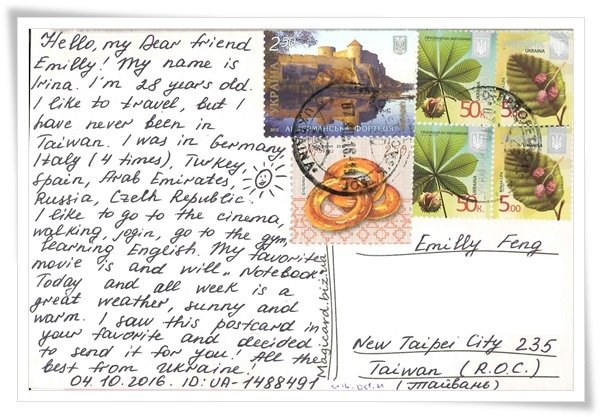 Hello, my Dear friend
Emilly! My name is
Irina. I'm 28 years old.
I like to travel, but I
have never been in
Taiwan. I was in Germany,
Italy (4 times), Turkey,
Spain, Arab Emirates,
Russia, Czelh Republic.
I like to go to the cinema,
walking, jogin, go to the gym,
learning English. My favorites
movie is and will „Notebook"
Today and all week is a
great weather, sunny and
warm. I saw this postcard in
your favorite and decided
to send it for you! All the
best from Ukraine!
04.10.2016. ID: UA-1488491
Magicard.biz.ua
2.50
УКРАЇНА
2012
АККЕРМАНСЬКА ФОРТЕЦЯ
УКРАЇНА
50к.
УКРАЇНА
5.00
50к.
5.00
Emilly Feng
New Taipei City 235
Taiwan (R.O.C.)
(Тайвань)